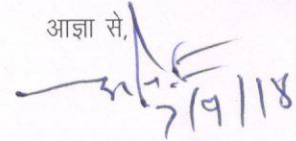 आज्ञा से,
7/9/18